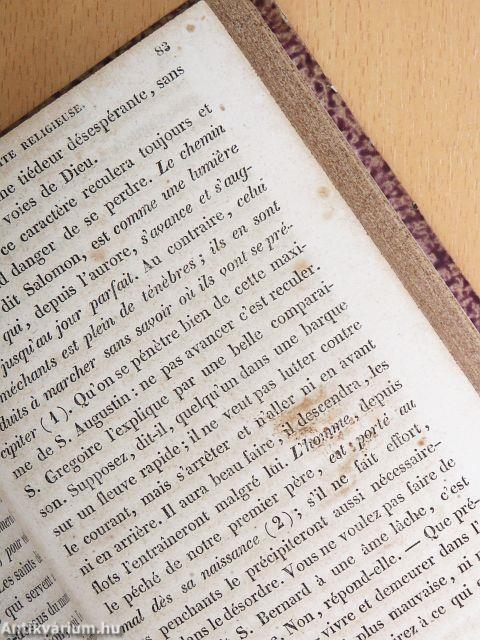 83
ITÉ RELIGIEUSE.
ne tiédeur désespérante, sans
voies de Dieu.
ce caractère reculera toujours et
d danger de se perdre. Le chemin
dit Salomon, est comme une lumière
qui, depuis l'aurore, s'avance et s'aug-
jusqu'au jour parfait. Au contraire, celui
méchants est plein de ténèbres; ils en sont
duits à marcher sans savoir où ils vont se pré-
cipiter (1). Qu'on se pénètre bien de cette maxi-
me de S. Augustin: ne pas avancer c'est reculer.
S. Grégoire l'explique par une belle comparai-
son. Supposez, dit-il, quelqu'un dans une barque
sur un fleuve rapide; il ne veut pas lutter contre
le courant, mais s'arrêter et n'aller ni en avant
ni en arrière. Il aura beau faire, il descendra, les
flots l'entraîneront malgré lui. L'homme, depuis
le péché de notre premier père, est porté au
nd dès sa naissance (2); s'il ne fait effort,
penchants le précipiteront aussi nécessaire-
dans le désordre. Vous ne voulez pas faire de
S. Bernard à une âme lâche, c'est
Non, répond-elle. — Que pré-
vivre et demeurer dans l'
plus mauvaise, ni
à ce qui
pour
Les saints
qui servent
du
Antikvárium.hu
Antikvarium.hu